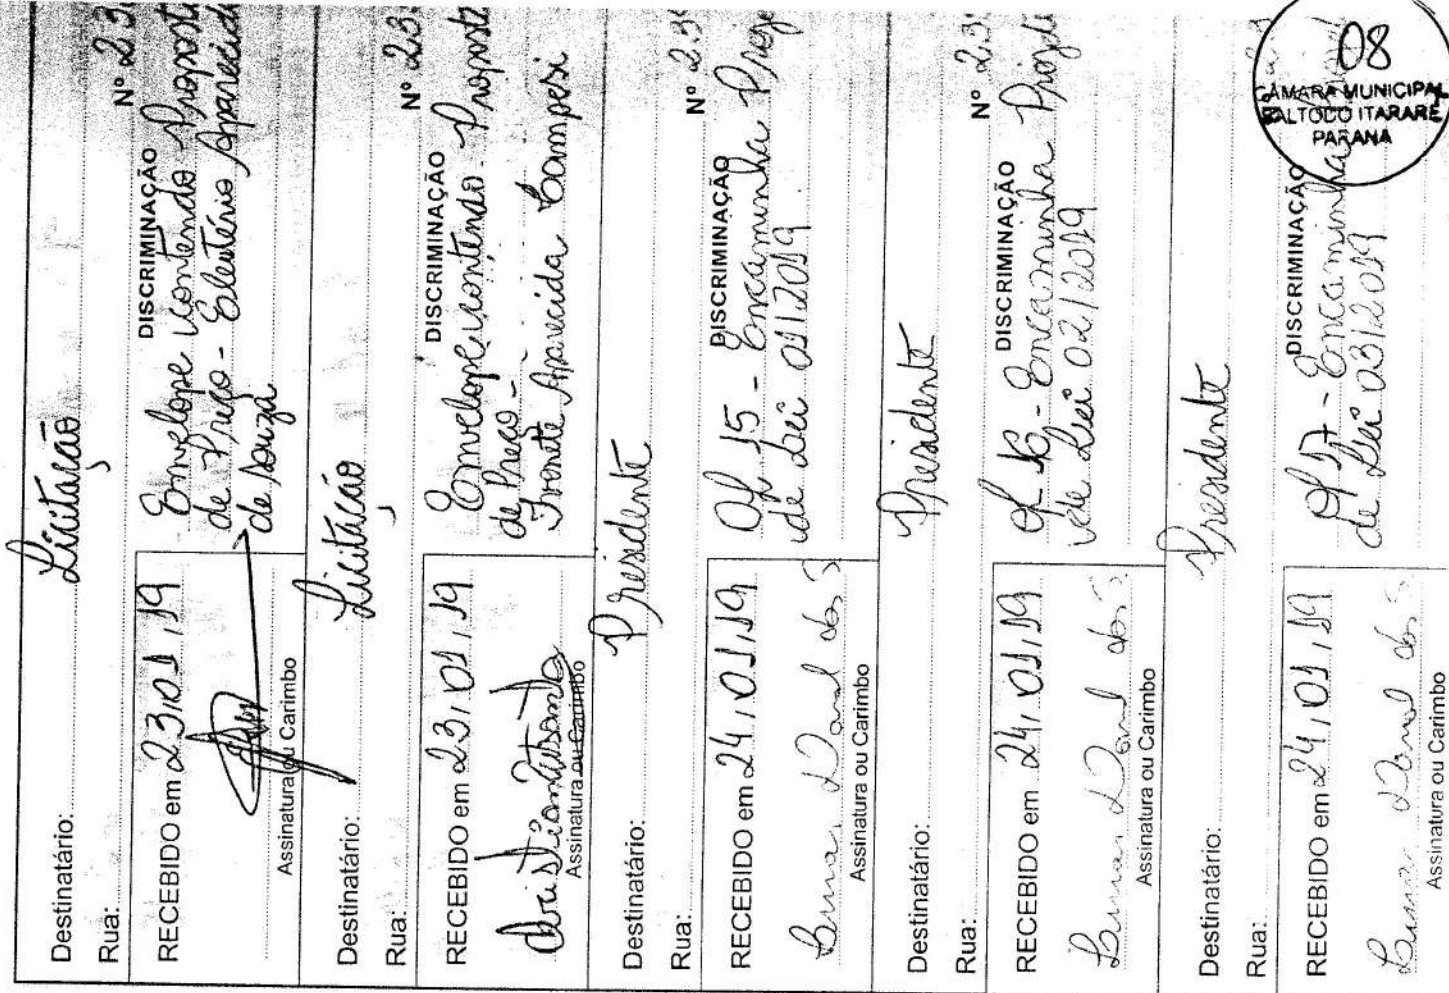 Destinatário: Licitação
Rua: Nº 23
RECEBIDO em 23, 01, 19
Assinatura ou Carimbo
DISCRIMINAÇÃO
Envelope contendo Propost
de Preço - Eleutério Aparecid
de Souza
Destinatário: Licitação
Rua: Nº 23
RECEBIDO em 23, 01, 19
Assinatura ou Carimbo
DISCRIMINAÇÃO
Envelope contendo Propost
de Preço -
Ivonete Aparecida Campesi
Destinatário: Presidente
Rua: Nº 23
RECEBIDO em 24, 01, 19
Assinatura ou Carimbo
DISCRIMINAÇÃO
Of 15 - Encaminha Proje
de Lei 01/2019
Destinatário: Presidente
Rua: Nº 23
RECEBIDO em 24, 01, 19
Assinatura ou Carimbo
DISCRIMINAÇÃO
Of 16 - Encaminha Proje
de Lei 02/2019
Destinatário: Presidente
Rua:
RECEBIDO em 24, 01, 19
Assinatura ou Carimbo
DISCRIMINAÇÃO
Of 17 - Encaminha
de Lei 03/2019
08
CÂMARA MUNICIPAL
SALTO DO ITARARÉ
PARANÁ